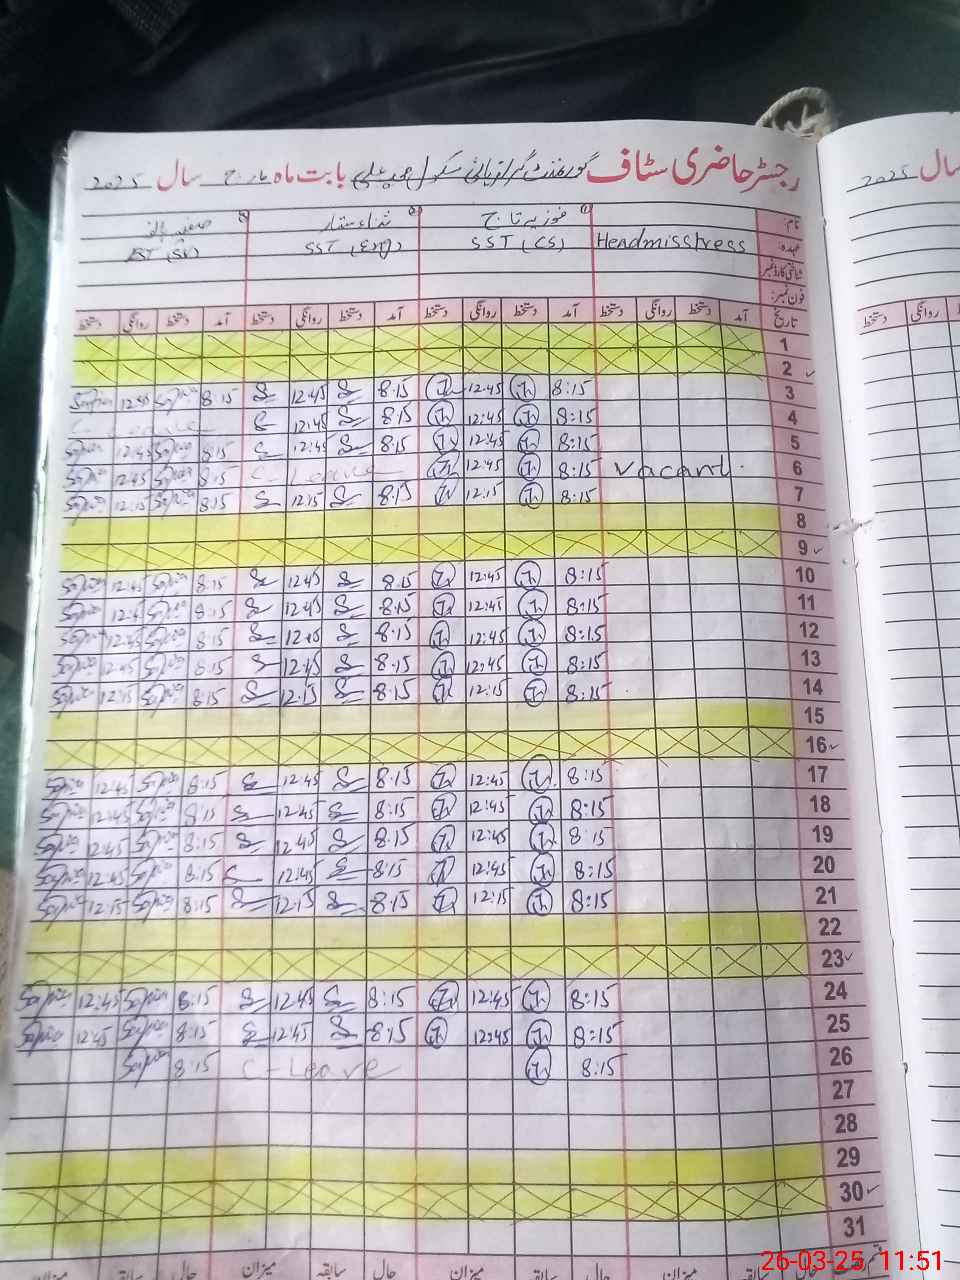 رجسٹر حاضری سٹاف گورنمنٹ گرلز ہائی سکول بابت ماہ مارچ سال 2025
نام: فوزیہ تاج ثناء ستار
عہدہ: Headmisstress SST (CS) SST
شناختی کارڈ نمبر
فون نمبر:
تاریخ آمد دستخط روانگی دستخط آمد دستخط روانگی دستخط آمد دستخط روانگی دستخط آمد دستخط روانگی دستخط
1
2
3 8:15 12:45 8:15 12:45 8:15 12:45
4 8:15 12:45 8:15 12:45 Leave
5 8:15 12:45 8:15 12:45 8:15 12:45
6 Vacant. 8:15 12:45 C-Leave 8:15 12:45
7 8:15 12:15 8:15 12:15 8:15 12:15
8
9
10 8:15 12:45 8:15 12:45 8:15 12:45
11 8:15 12:45 8:15 12:45 8:15 12:45
12 8:15 12:45 8:15 12:45 8:15 12:45
13 8:15 12:45 8:15 12:45 8:15 12:45
14 8:15 12:15 8:15 12:15 8:15 12:15
15
16
17 8:15 12:45 8:15 12:45 8:15 12:45
18 8:15 12:45 8:15 12:45 8:15 12:45
19 8:15 12:45 8:15 12:45 8:15 12:45
20 8:15 12:45 8:15 12:45 8:15 12:45
21 8:15 12:15 8:15 12:15 8:15 12:15
22
23
24 8:15 12:45 8:15 12:45 8:15 12:45
25 8:15 12:45 8:15 12:45 8:15 12:45
26 8:15 C-Leave 8:15
27
28
29
30
31
میزان حال سابقہ میزان حال سابقہ میزان حال سابقہ میزان
سال 2025
روانگی دستخط
26-03-25 11:51